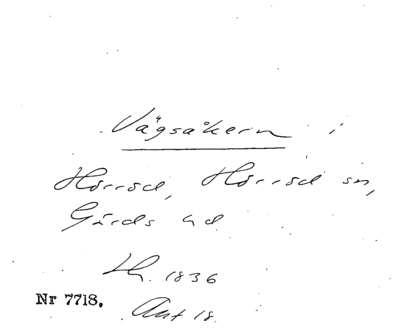 Vägsåkern i
Hörröd, Hörröd sn,
Gärds hd
Lh. 1836
Nr 7718.
Akt 18.